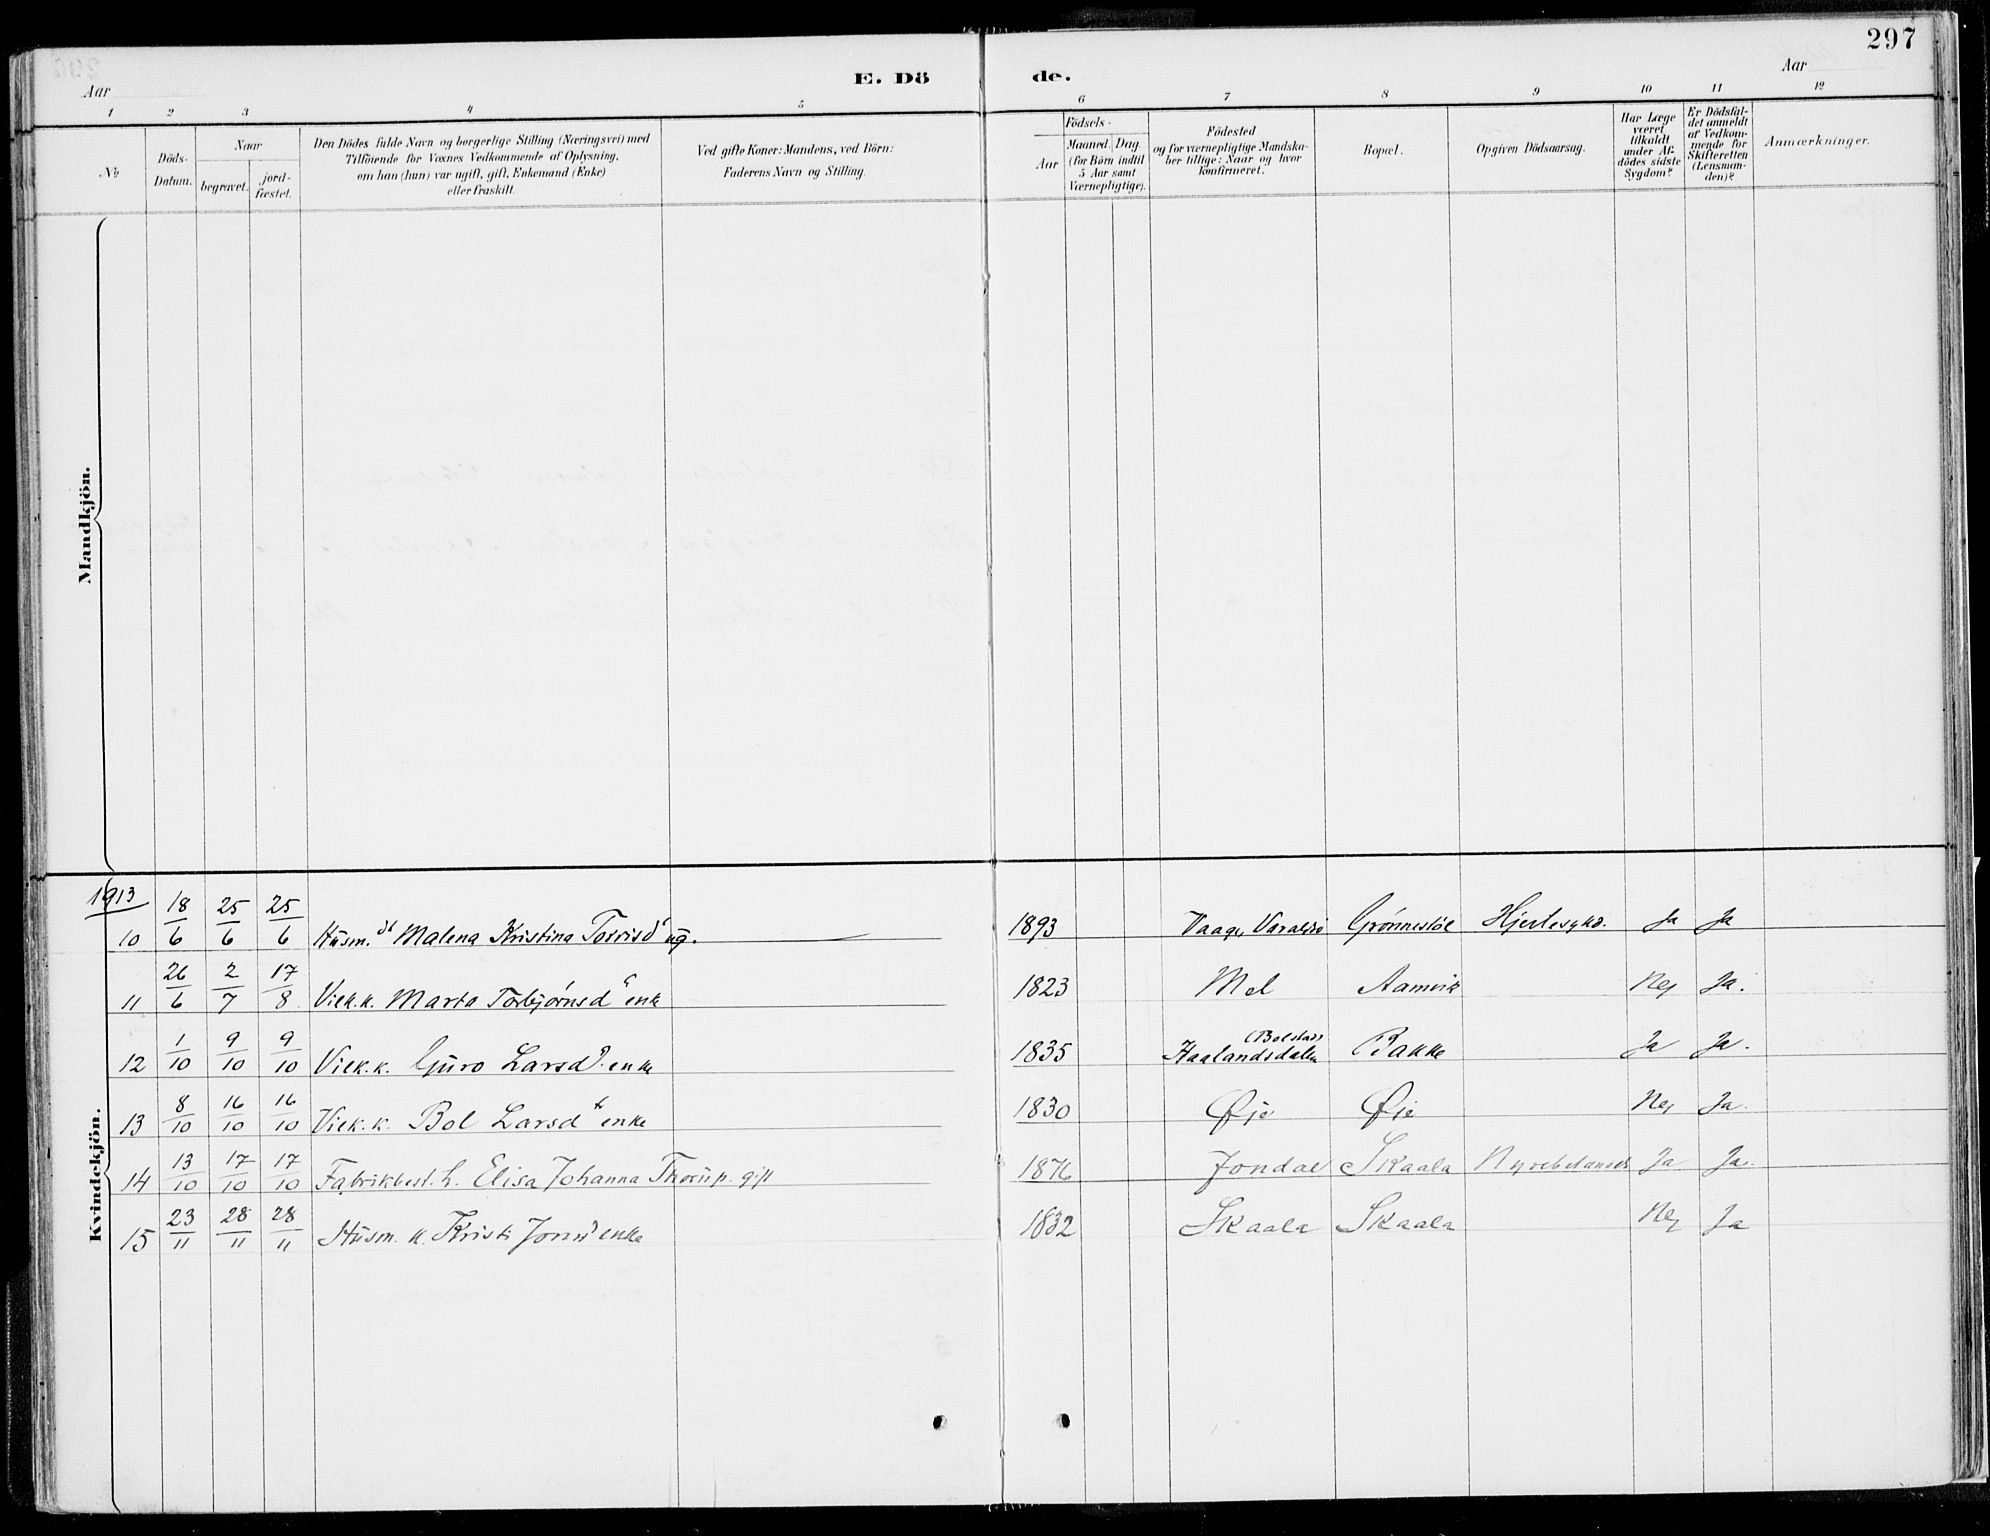 297
Aar
E. Dö
de.
Aar
1 2 3 4 5 6 7 8 9 10 11 12
№
Döds-
Datum.
Naar
begravet.
jord-
fæstet.
Den Dödes fulde Navn og borgerlige Stilling (Næringsvei) med
Tilföiende for Voxnes Vedkommende af Oplysning,
om han (hun) var ugift, gift, Enkemand (Enke)
eller fraskilt.
Ved gifte Koner: Mandens, ved Börn:
Faderens Navn og Stilling.
Födsels-
Aar
Maaned. Dag
(for Börn indtil
5 Aar samt
Værnepligtige).
Födested
og for værnepligtige Mandska-
ber tillige: Naar og hvor
konfirmeret.
Bopæl.
Opgiven Dödsaarsag.
Har Læge
været
tilkaldt
under Af-
dödes sidste
Sygdom?
Er Dödsfal-
det anmeldt
af Vedkom-
mende for
Skifteretten
(Lensman-
den)?
Anmærkninger.
Mandkjön.
Kvindekjön.
1913
10 18/6 25/6 25/6 Husm. dt Malena Kristina Torrisd ug. 1893 Vaage, Varaldsø Grønnestøl Hjertesygd. Ja Ja
11 26/6 2/7 17/8 Viek.k. Marta Torbjørnsd enke 1823 Mel Aamvik Nej Ja.
12 1/10 9/10 9/10 Viek.k. Guro Larsd. enke 1835 (Bolstad) Haalandsdalen Bakke Ja Ja.
13 8/10 16/10 16/10 Viek.k. Bol Larsdtr enke 1830 Øje Øje Nej Ja.
14 13/10 17/10 17/10 Fabrikbest. h. Elisa Johanna Thorup. gift 1876 Jondal Skaala Ja Ja.
15 23/11 28/11 28/11 Husm. k. Kristi enke 1832 Skaala Skaala Nej Ja